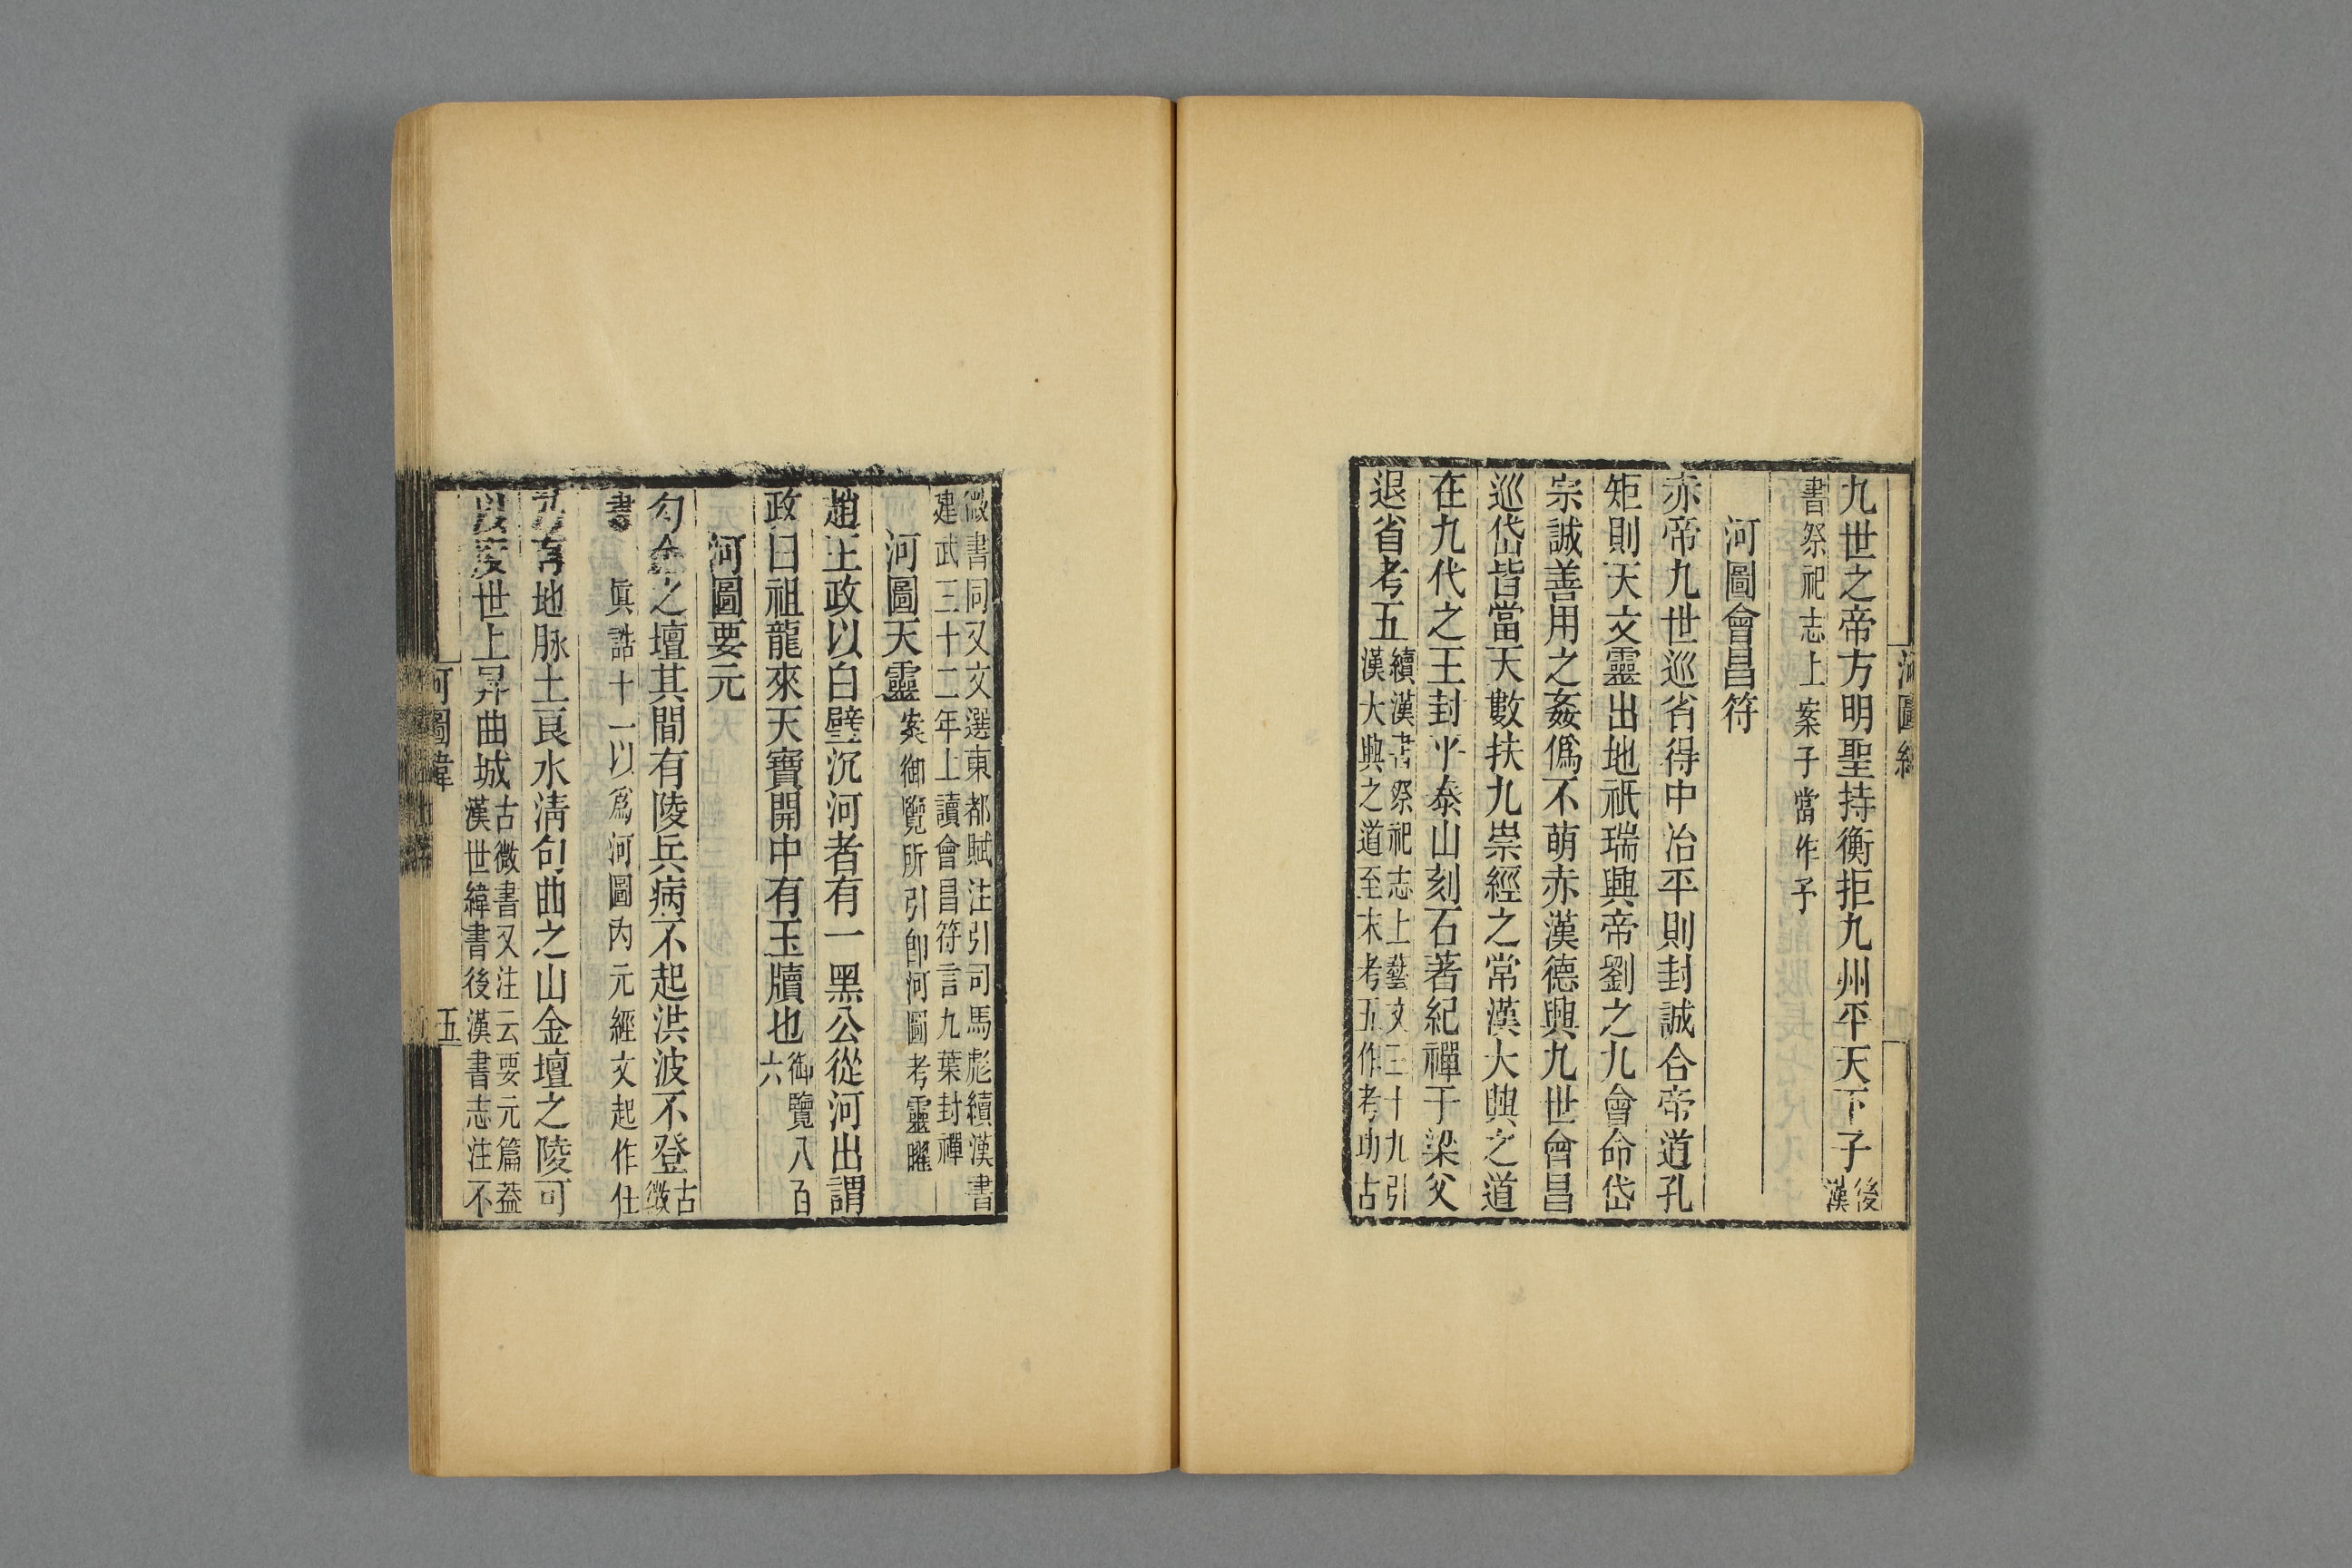 河圖緯
九世之帝方明聖持衡拒九州平天下子後漢
書祭祀志上案子當作予
河圖會昌符
赤帝九世巡省得中治平則封誠合帝道孔
矩則天文靈出地祇瑞興帝劉之九會命岱
宗誠善用之姦僞不萌赤漢德興九世會昌
巡岱皆當天數扶九崇經之常漢大興之道
在九代之王封乎泰山刻石著紀禪于梁父
退省考五續漢書祭祀志上藝文三十九引漢大興之道至末考五作考功古
微書同又文選東都賦注引司馬彪續漢書建武三十二年上讀會昌符言九葉封禪
河圖天靈案御覽所引卽河圖考靈曜
趙王政以白璧沉河者有一黑公從河出謂
政曰祖龍來天寶開中有玉牘也御覽八百六
河圖要元
句金之壇其間有陵兵病不起洪波不登古微
書眞誥十一以爲河圖內元經文起作仕
乃有地脉土良水清句曲之山金壇之陵可
以度世上昇曲城古微書又注云要元篇葢漢世緯書後漢書志注不
河圖緯
五